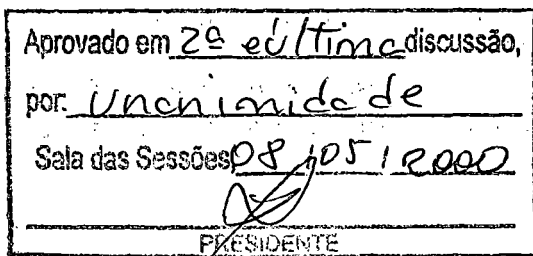 Aprovado em 2ª e última discussão,
por: Unanimidade
Sala das Sessões 08/05/2000
PRESIDENTE